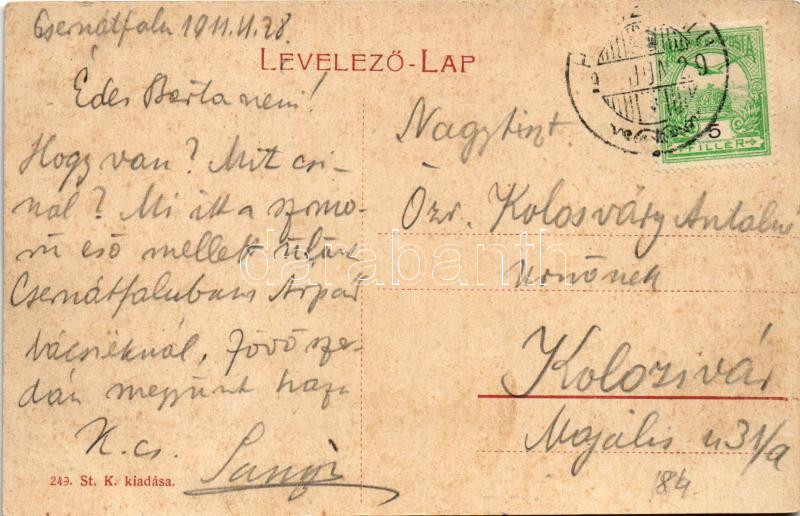 Csernátfalu 1911.VI.28.
LEVELEZŐ-LAP
Édes Berta néni!
Hogy van? Mit csi-
nál? Mi itt a szomo-
rú eső mellett ülünk
Csernátfaluban Árpád
bácsiéknál. Jövő sze-
dán megyünk haza
K. cs.
249. St. K. kiadása.
POSTA
5
FILLÉR
Nagyts.
Özv. Kolosváry Antalné
Urnőnek
Kolozsvár
Majális u 31/a
184.
darabanth